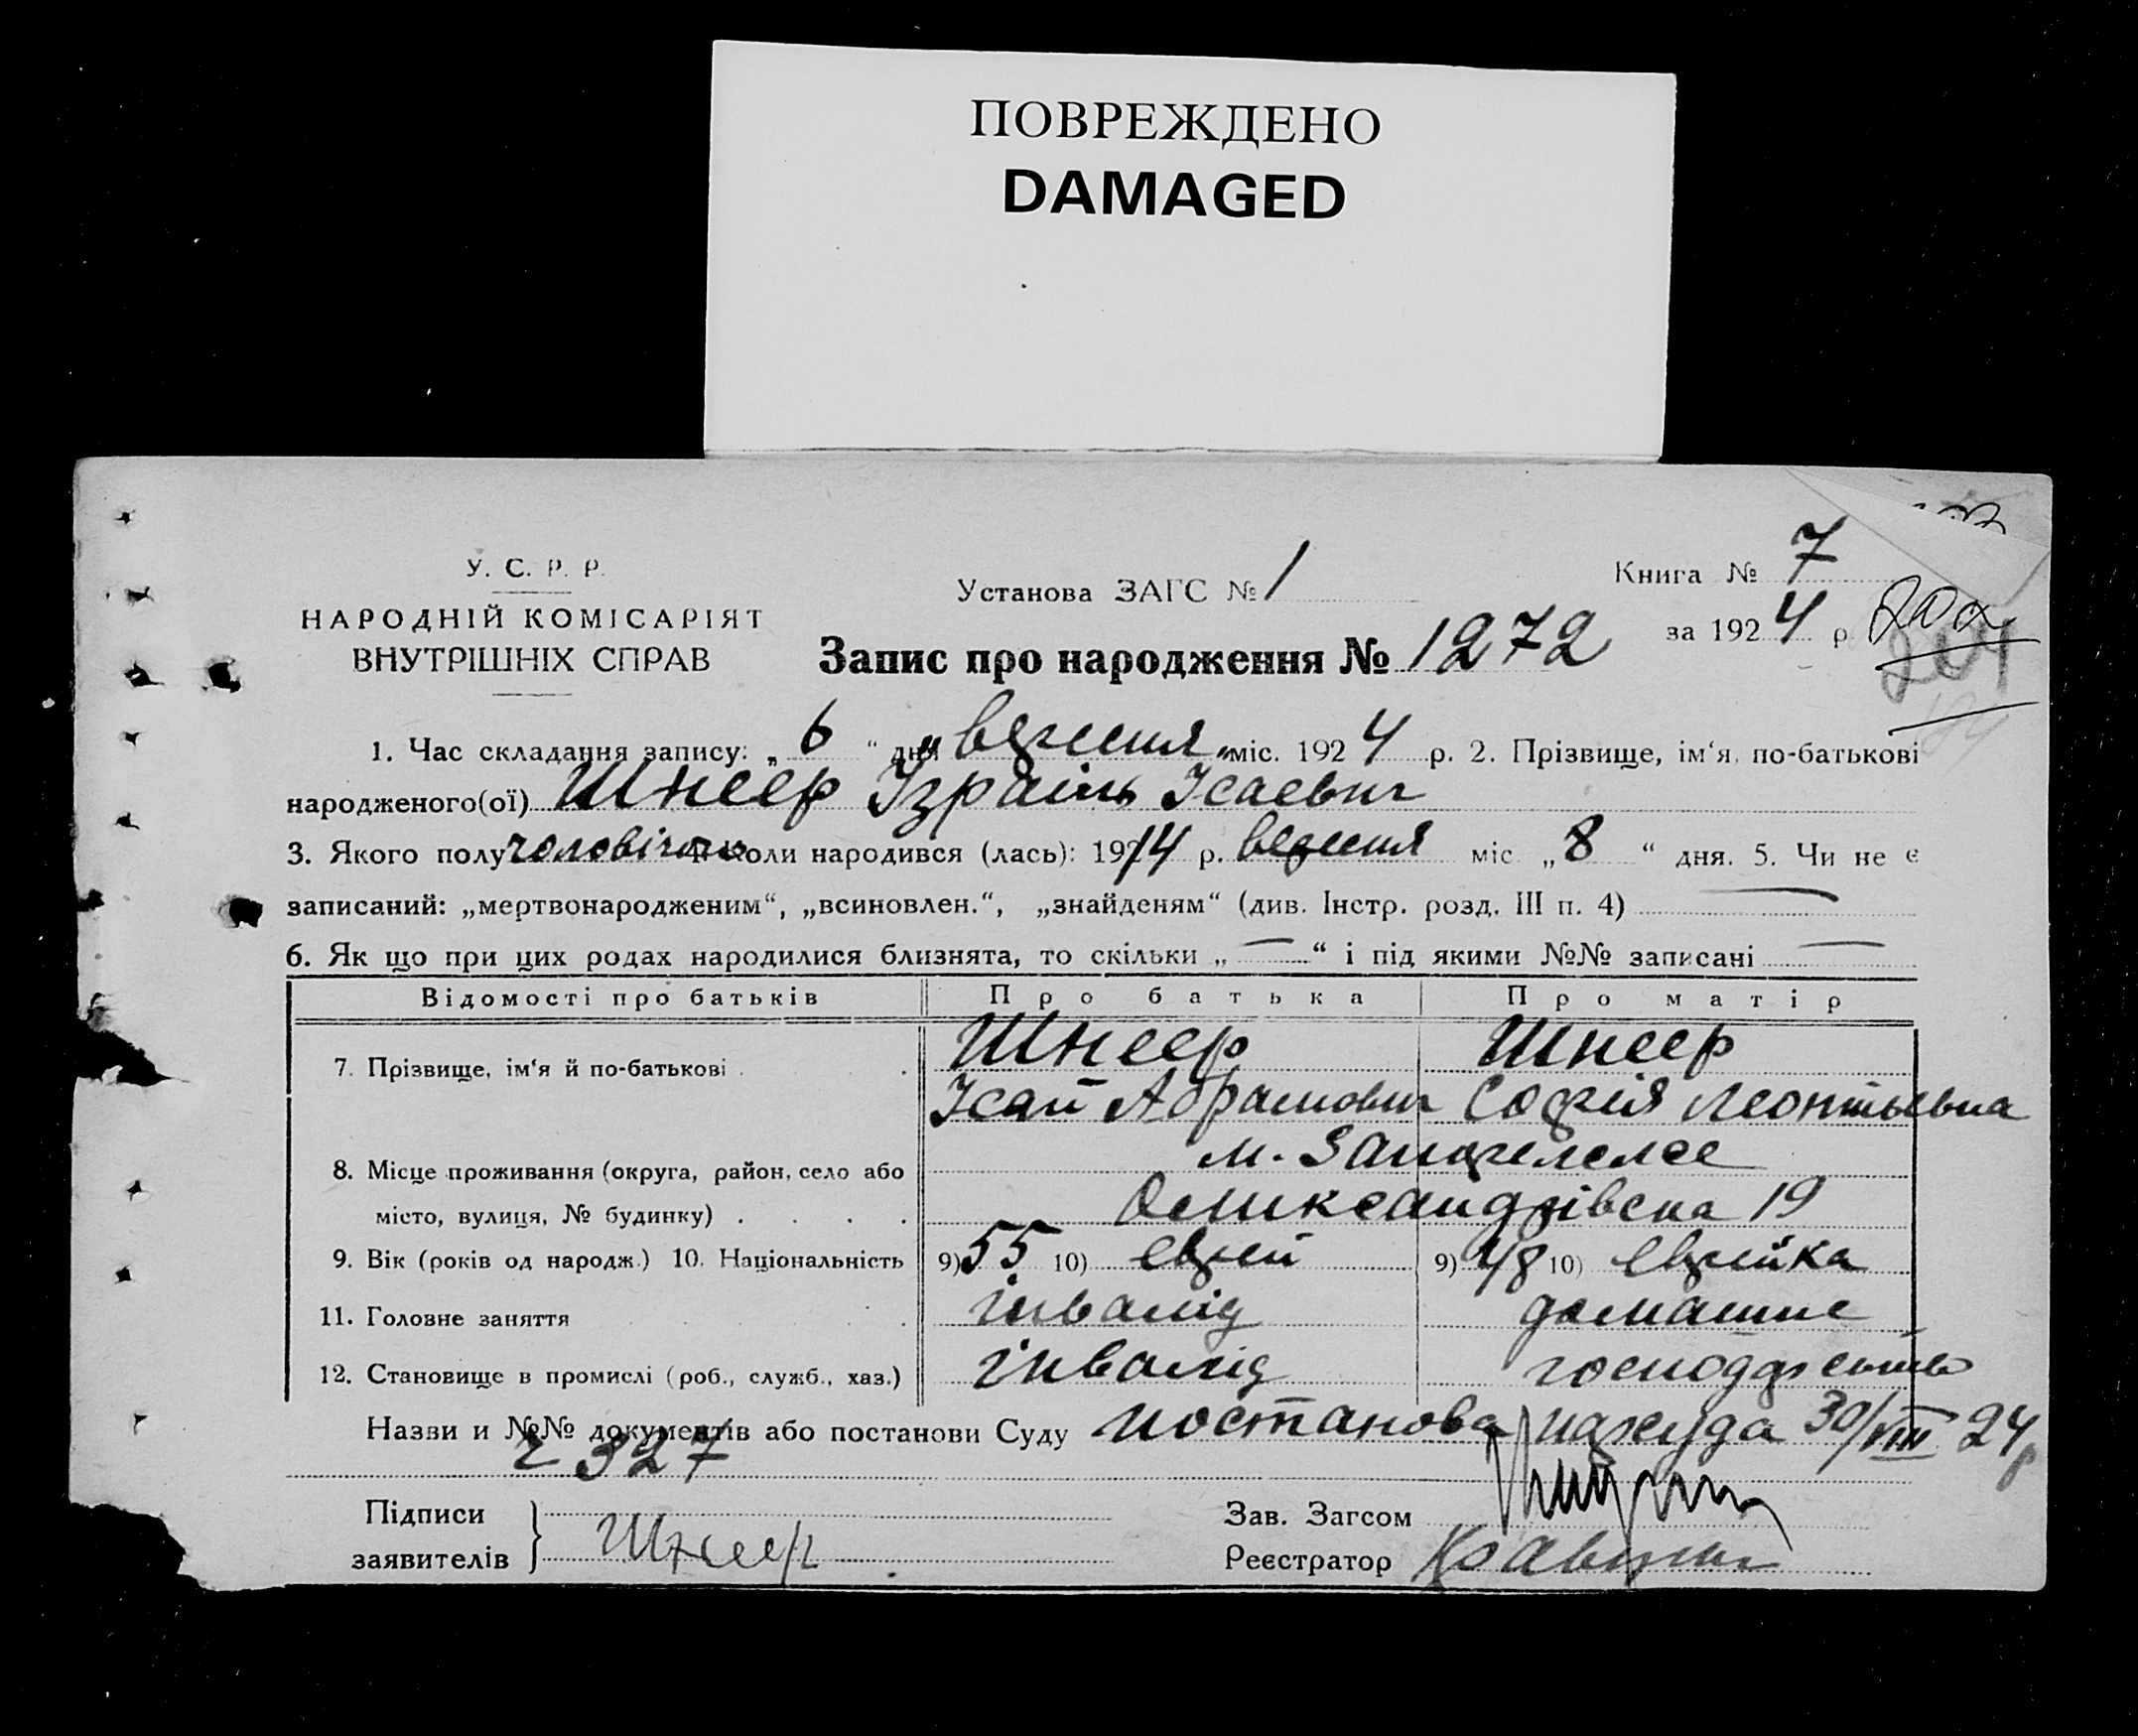 ПОВРЕЖДЕНО
DAMAGED
У. С. Р. Р.
НАРОДНІЙ КОМІСАРІЯТ
ВНУТРІШНІХ СПРАВ
Установа ЗАГС № 1
Книга № 7
за 1924 р.
202
204
Запис про народження № 1272
1. Час складання запису: „6“ дня „вересня“ міс. 1924 р. 2. Прізвище, ім‘я, по-батькові
народженого(ої) Шнеер Ізраіль Ісаевич
3. Якого полу чоловічого 4. Коли народився (лась): 1914 р. вересня міс. „8“ дня. 5. Чи не є
записаний: „мертвонародженим“, „всиновлен.“, „знайденям“ (див. Інстр. розд. III п. 4) —
6. Як що при цих родах народилися близнята, то скільки „—“ і під якими №№ записані —
Відомості про батьків Про батька Про матір
7. Прізвище, ім‘я й по-батькові Шнеер Шнеер
Ісай Абрамович Софія Леонтьевна
8. Місце проживання (округа, район, село або м. Запоріжжє
місто, вулиця, № будинку) Олександрівська 19
9. Вік (років од народж.) 10. Національність 9) 55 10) еврей 9) 48 10) еврейка
11. Головне заняття інвалід домашнє
12. Становище в промислі (роб., служб., хаз.) інвалід господарство
Назви и №№ документів або постанови Суду постанова нарсуда 30/VIII 24 р
ч 327
Підписи
заявителів Шнеер
Зав. Загсом
Реєстратор